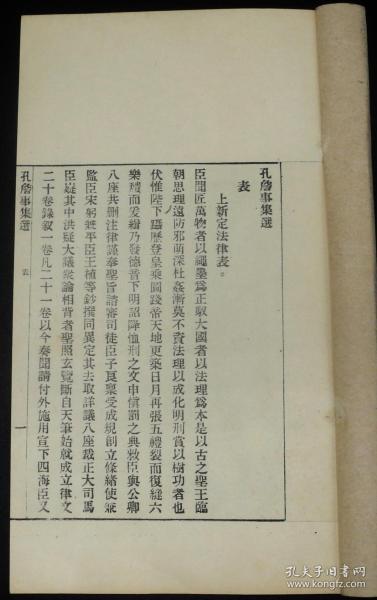 孔詹事集選
表
上新定法律表。
臣聞匠萬物者以繩墨為正馭大國者以法理為本是以古之聖王臨
朝思理遠防邪萌深杜姦漸莫不資法理以成化明刑賞以樹功者也
伏惟陛下躡歷登皇乘圖踐帝天地更築日月再張五禮裂而復縫六
樂頹而爰緝乃發德音下明詔降恤刑之文申慎罰之典敕臣與公卿
八座共刪注律謹奉聖旨諮審司徒臣子良稟受成規創立條緒使兼
監臣宋躬兼平臣王植等鈔撰同異定其去取詳議八座裁正大司馬
臣嶷其中洪疑大議衆論相背者聖照玄覽斷自天筆始就成立律文
二十卷錄敘一卷凡二十一卷以今奏聞請付外施用宣下四海臣又
孔詹事集選
表
一
孔夫子旧书网